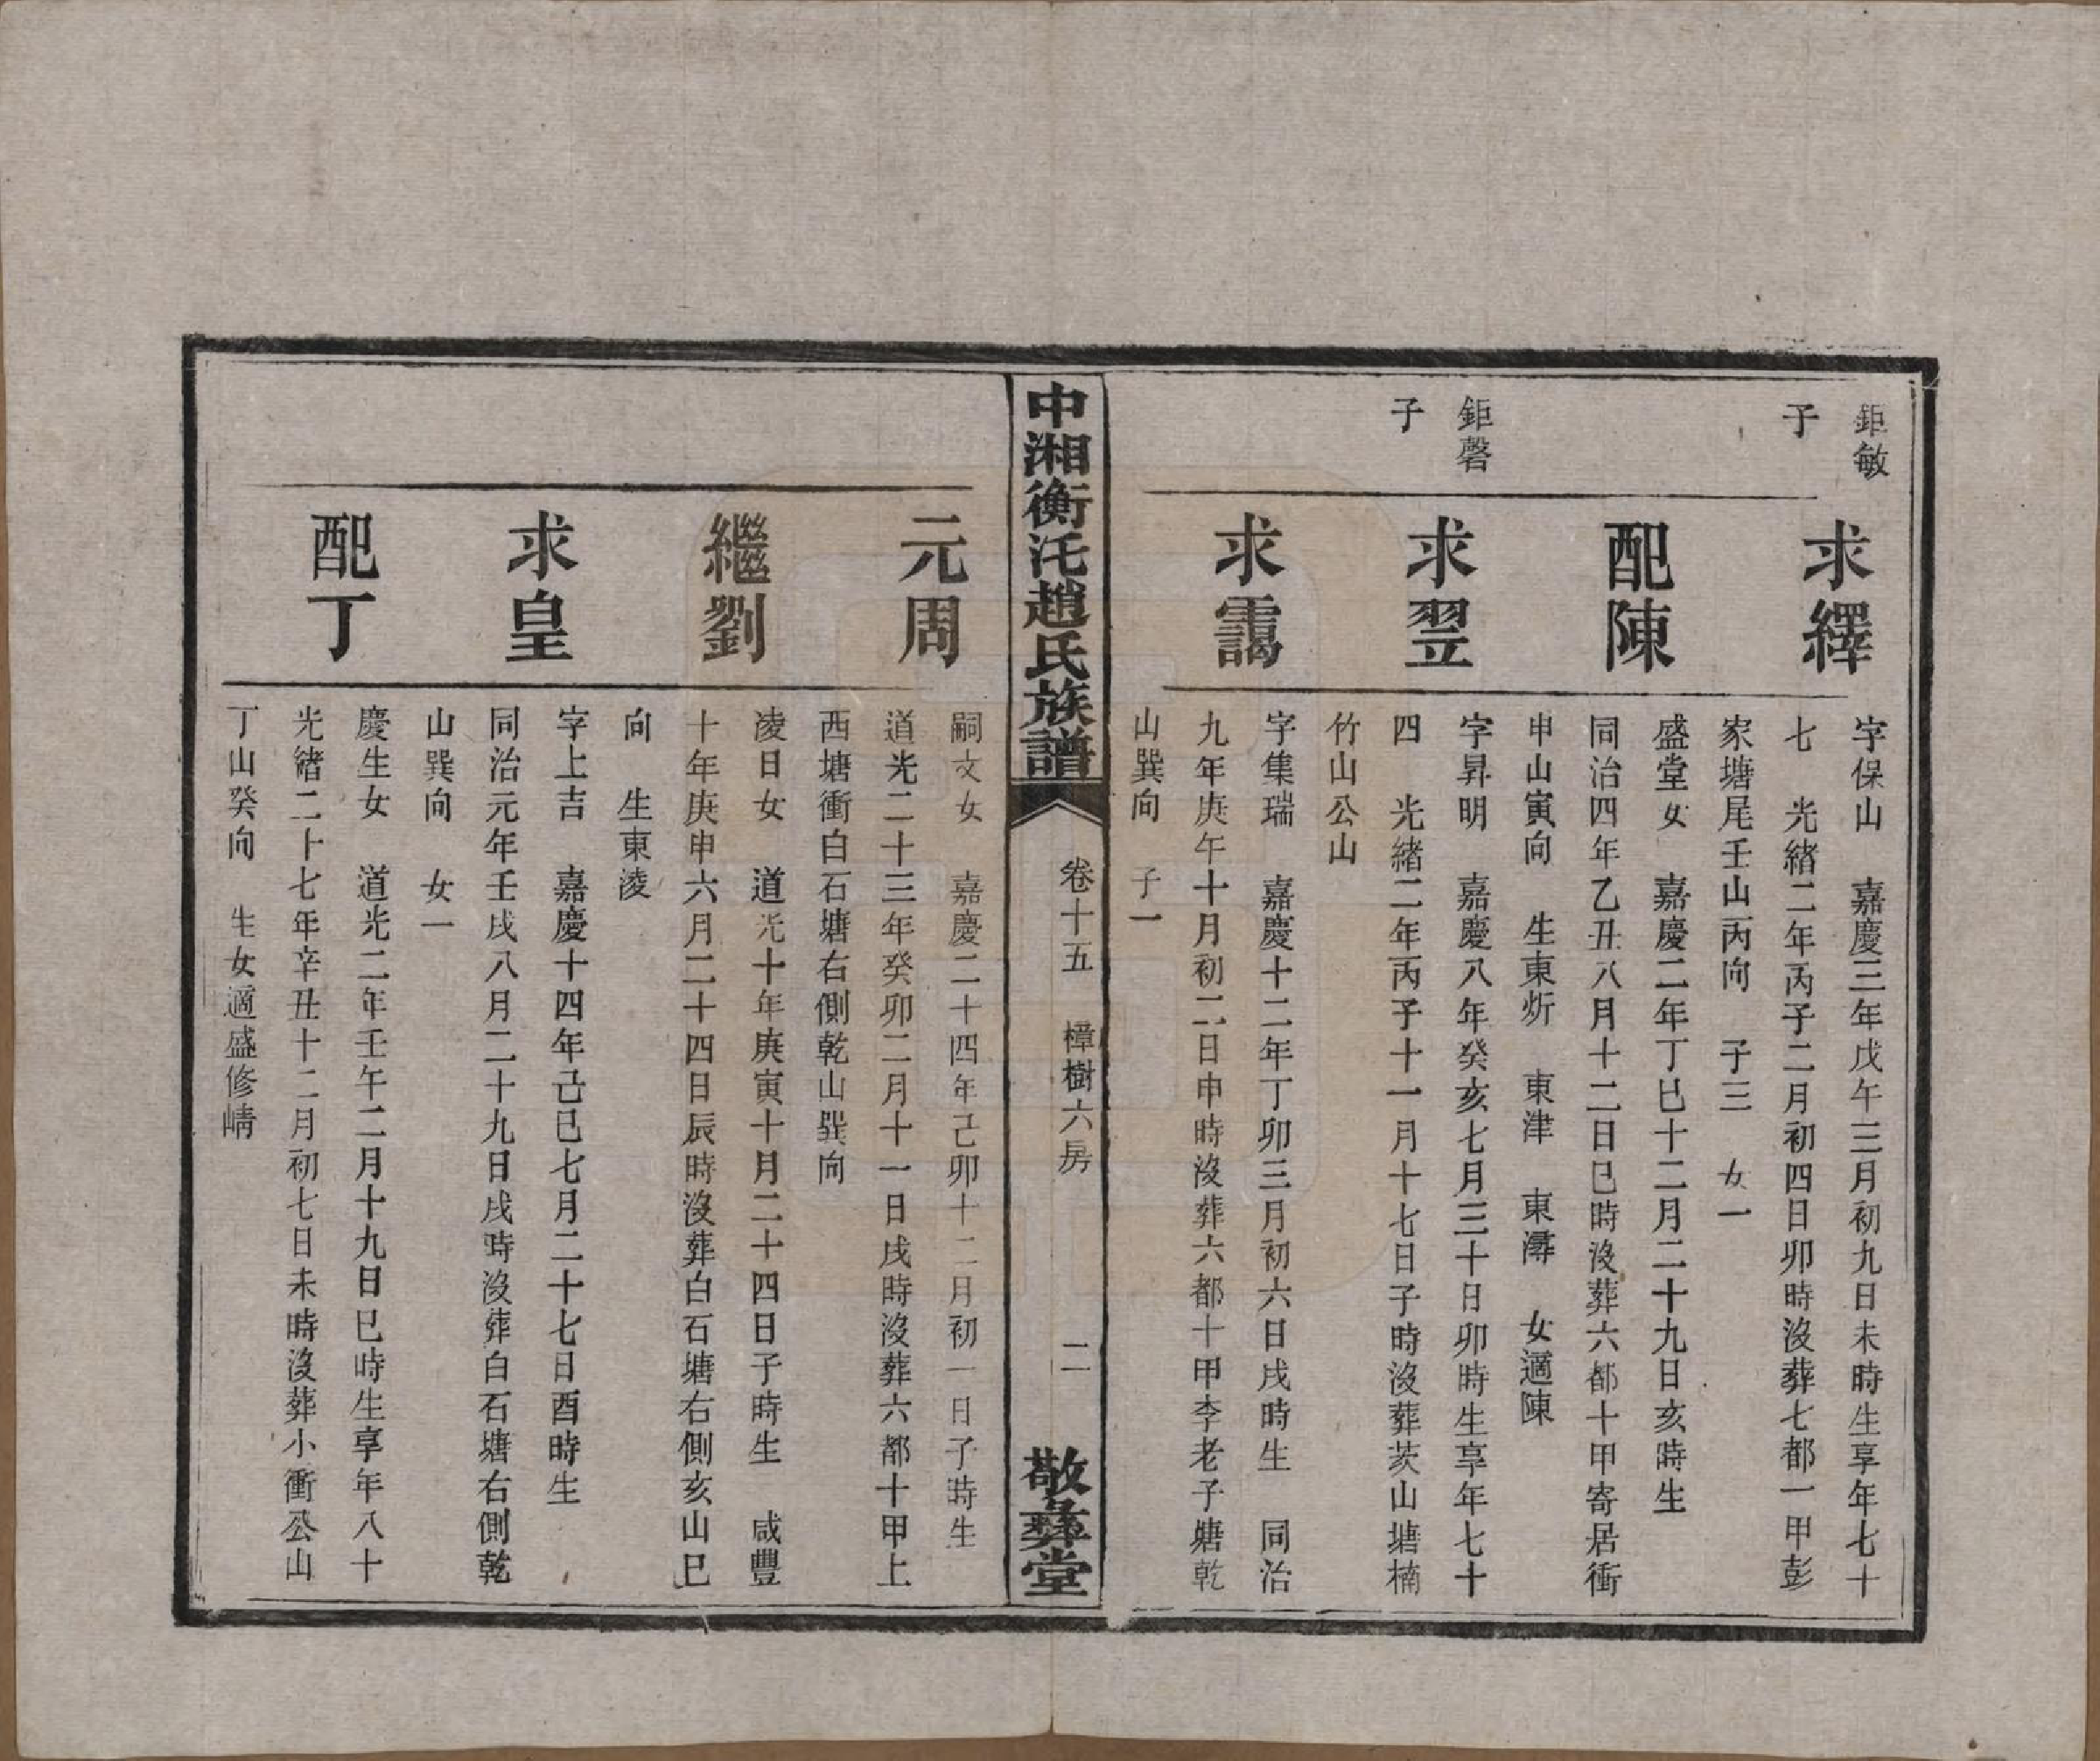 鉅敏
子
求繹
字保山　嘉慶三年戊午三月初九日未時生享年七十
七　光緒二年丙子二月初四日卯時沒葬七都一甲彭
家塘尾壬山丙向　子三　女一
配陳
盛堂女　嘉慶二年丁巳十二月二十九日亥時生
同治四年乙丑八月十二日巳時沒葬六都十甲寄居衝
申山寅向　生東炘　東津　東潯　女適陳
鉅磬
子
求翌
字昇明　嘉慶八年癸亥七月三十日卯時生享年七十
四　光緒二年丙子十一月十七日子時沒葬茨山塘楠
竹山公山
求靄
字集瑞　嘉慶十二年丁卯三月初六日戌時生　同治
九年庚午十月初二日申時沒葬六都十甲李老子塘乾
山巽向　子一
中湘衡汑趙氏族譜
卷十五　樟樹六房
二
敬彝堂
元周
嗣文女　嘉慶二十四年己卯十二月初一日子時生
道光二十三年癸卯二月十一日戌時沒葬六都十甲上
西塘衝白石塘右側乾山巽向
繼劉
凌日女　道光十年庚寅十月二十四日子時生　咸豐
十年庚申六月二十四日辰時沒葬白石塘右側亥山巳
向　生東淩
求皇
字上吉　嘉慶十四年己巳七月二十七日酉時生
同治元年壬戌八月二十九日戌時沒葬白石塘右側乾
山巽向　女一
配丁
慶生女　道光二年壬午二月十九日巳時生享年八十
光緒二十七年辛丑十二月初七日未時沒葬小衝公山
丁山癸向　生女適盛修崝